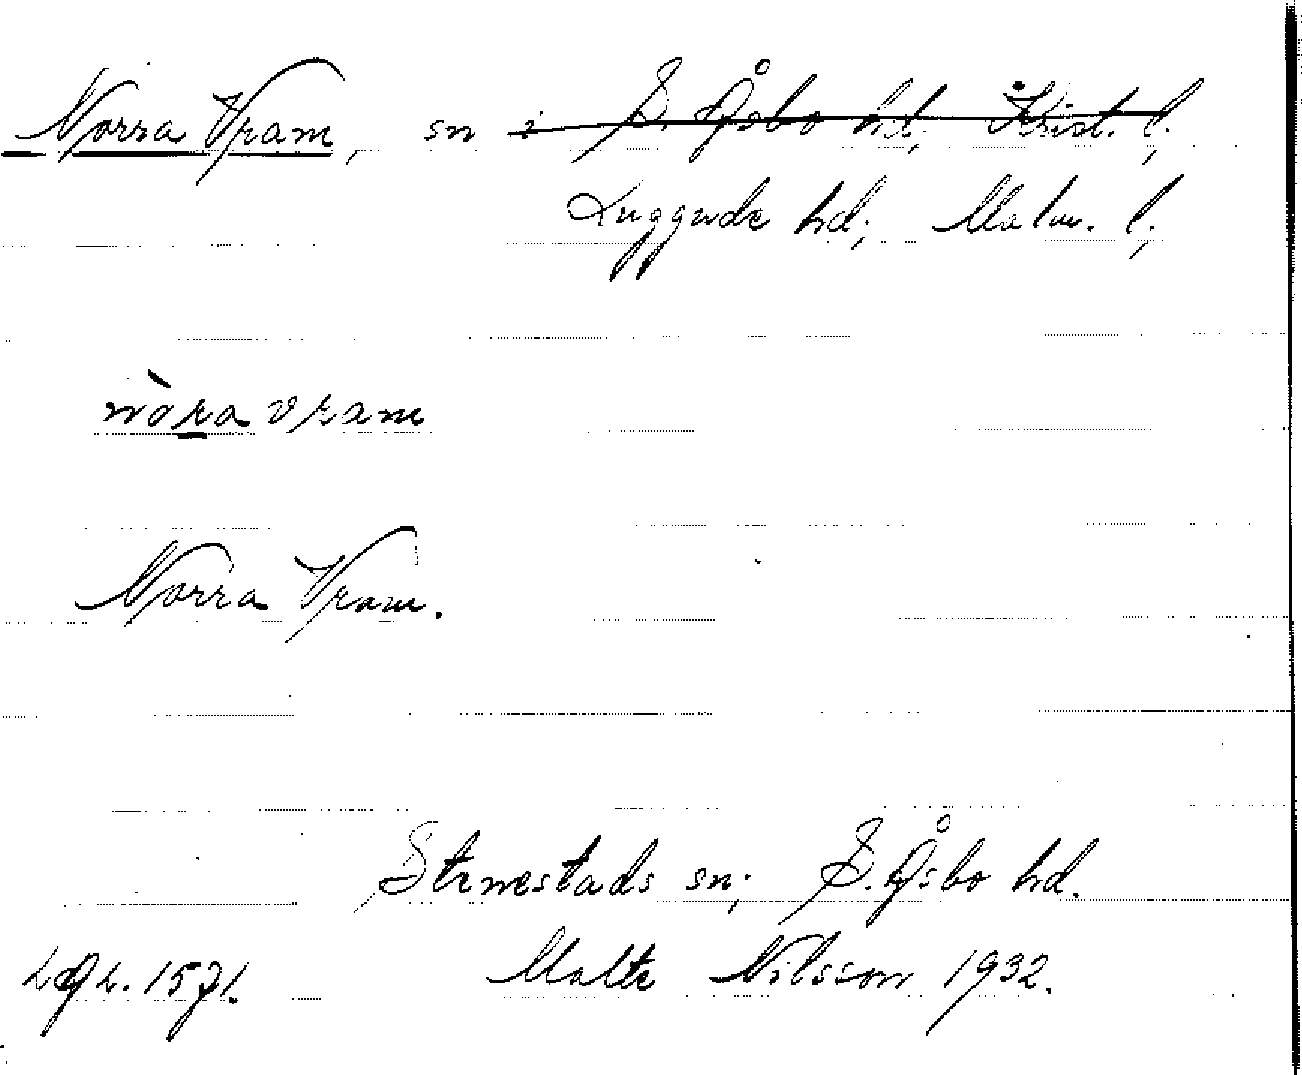 Norra Vram, sn i S. Åsbo hd, Krist. l.;
Luggude hd; Malm. l.;
nòra vram
Norra Vram.
Stenestads sn; S. Åsbo hd.
1571. Malte Nilsson 1932.